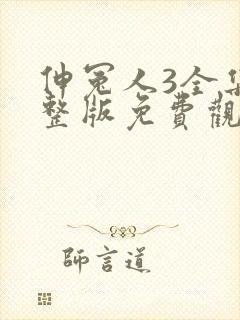 伸冤人3全集
整版免費觀
師言道